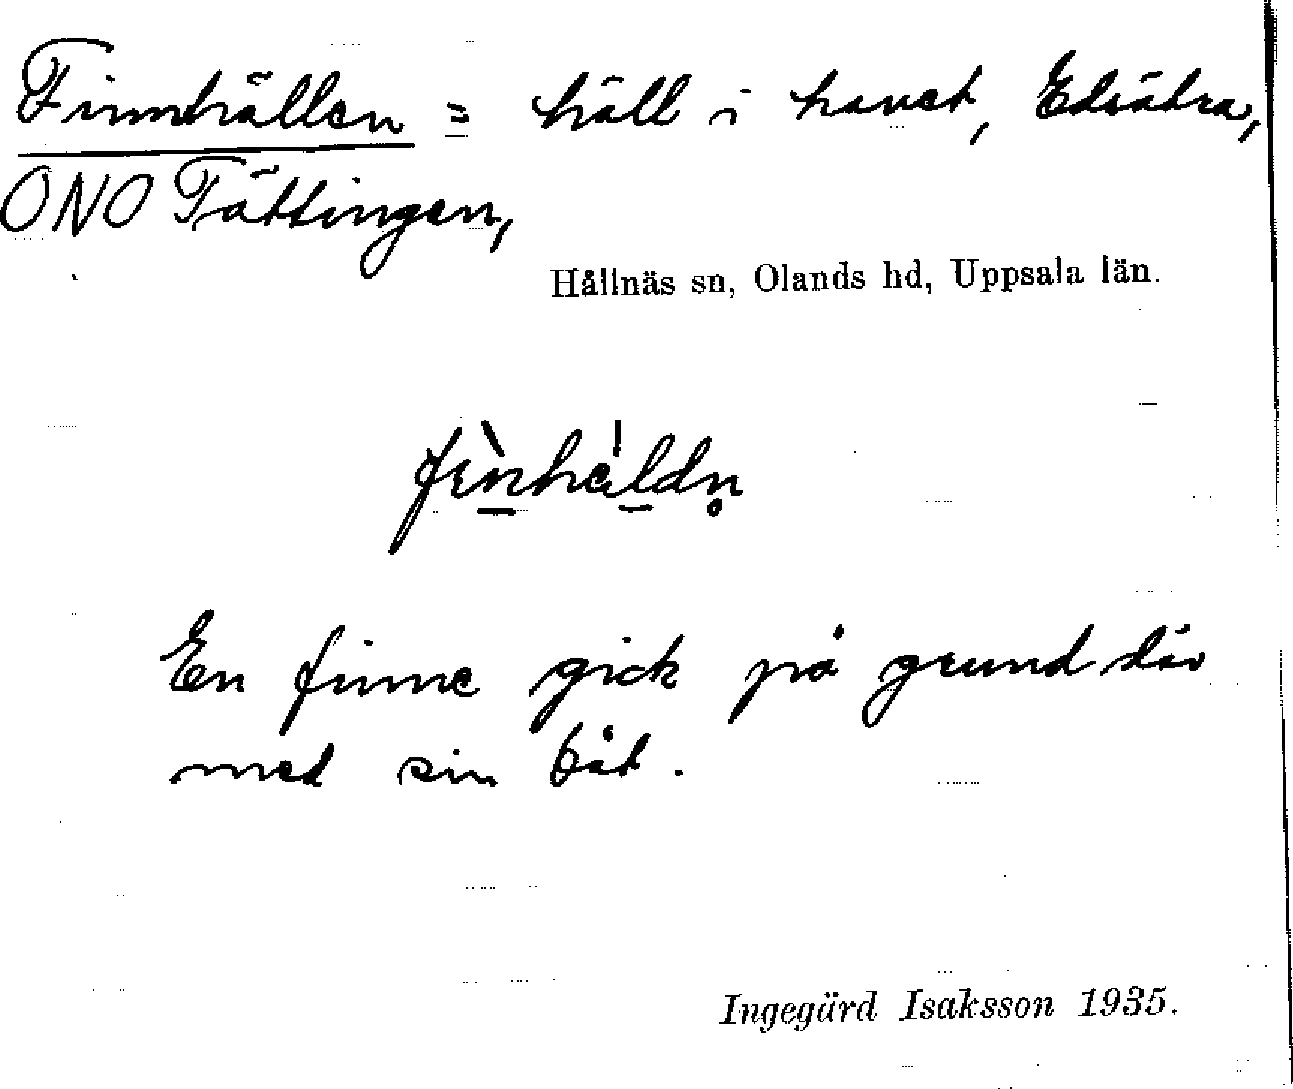 Finnhällen = häll i havet, Edsätra,
ONO Tättingen,
Hållnäs sn, Olands hd, Uppsala län.
En finne gick på grund där
med sin båt.
Ingegärd Isaksson 1935.